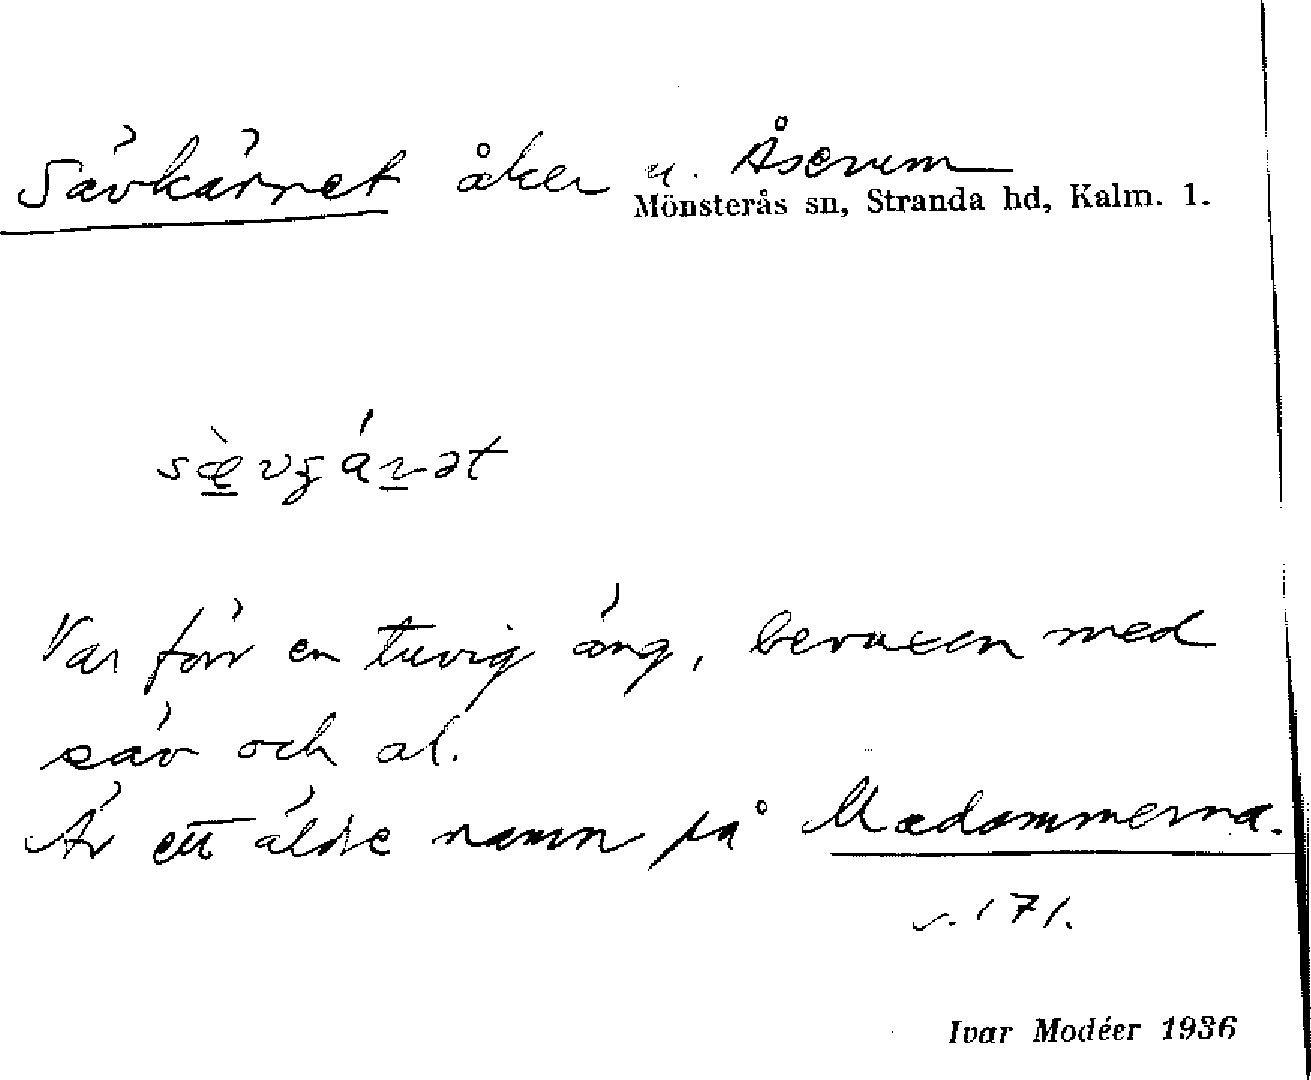 Sävkärret åker u. Åserum
Mönsterås sn, Stranda hd, Kalm. l.
sæ̀vgáret
Var förr en tuvig äng, bevuxen med
säv och al.
Är ett äldre namn på Madammerna.
s. 171.
Ivar Modéer 1936